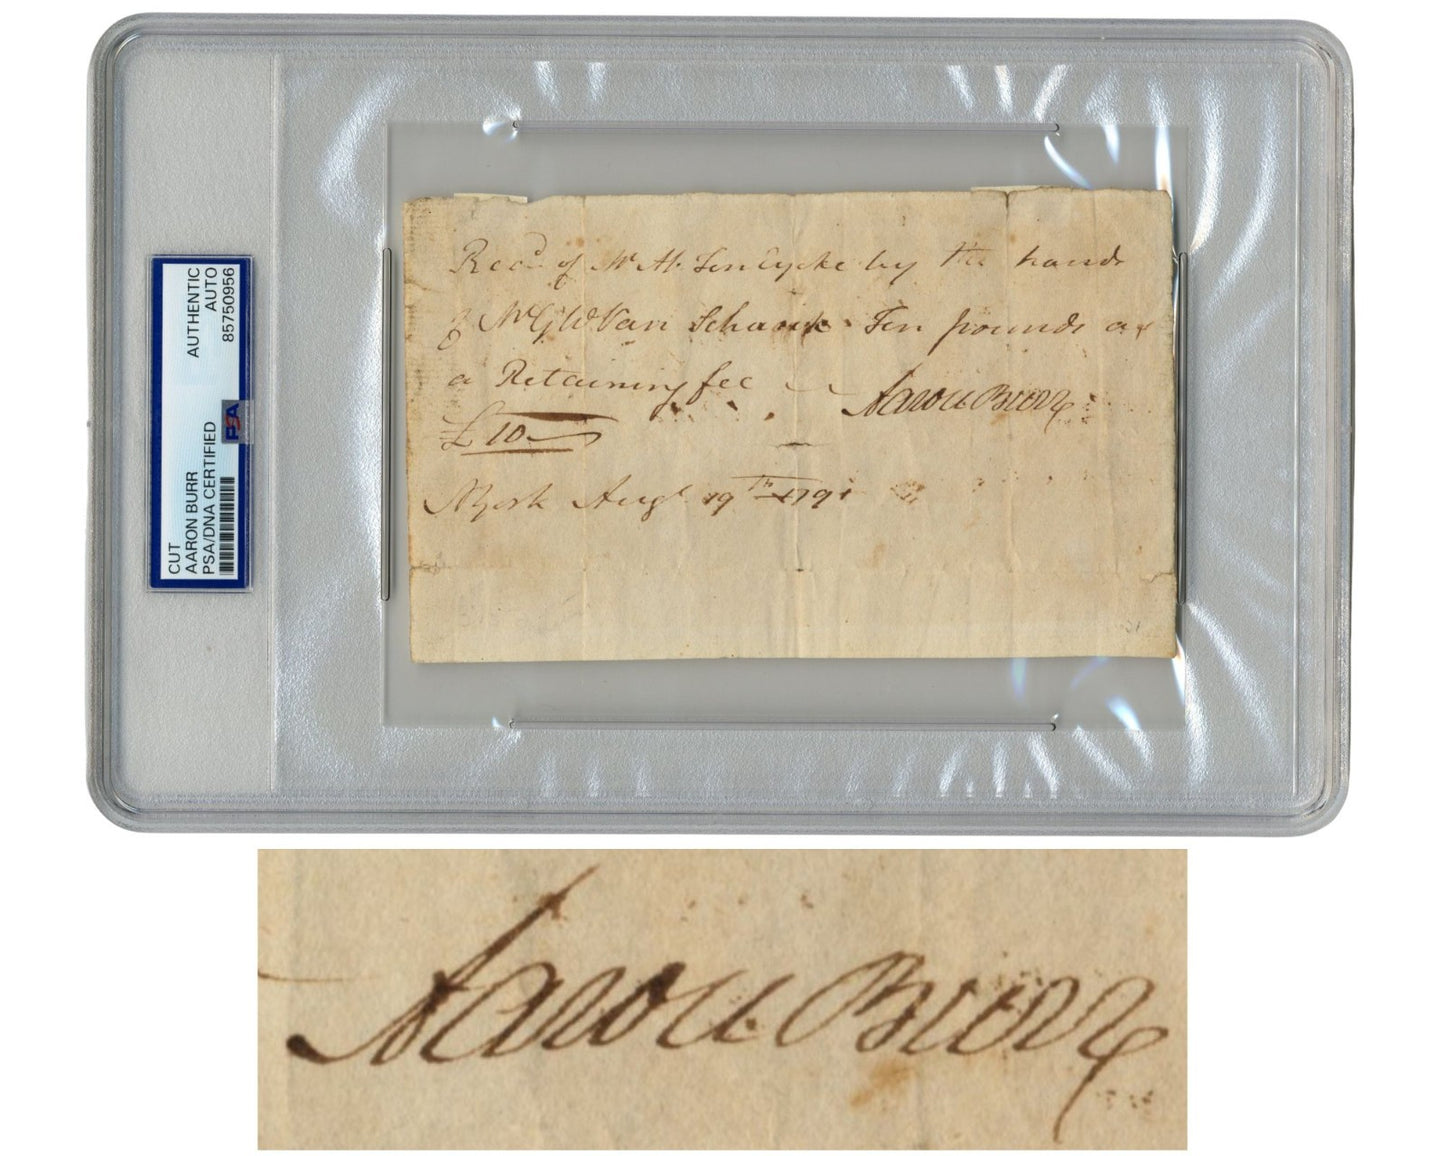 AUTHENTIC
AUTO
85750956
PSA
CUT
AARON BURR
PSA/DNA CERTIFIED
Recd. of Mr H. Ten Eycke by the hands
of Mr G W Van Schaick Ten pounds as
a Retaining fee
Aaron Burr
£10
NYork Augt 19th 1791
Aaron Burr